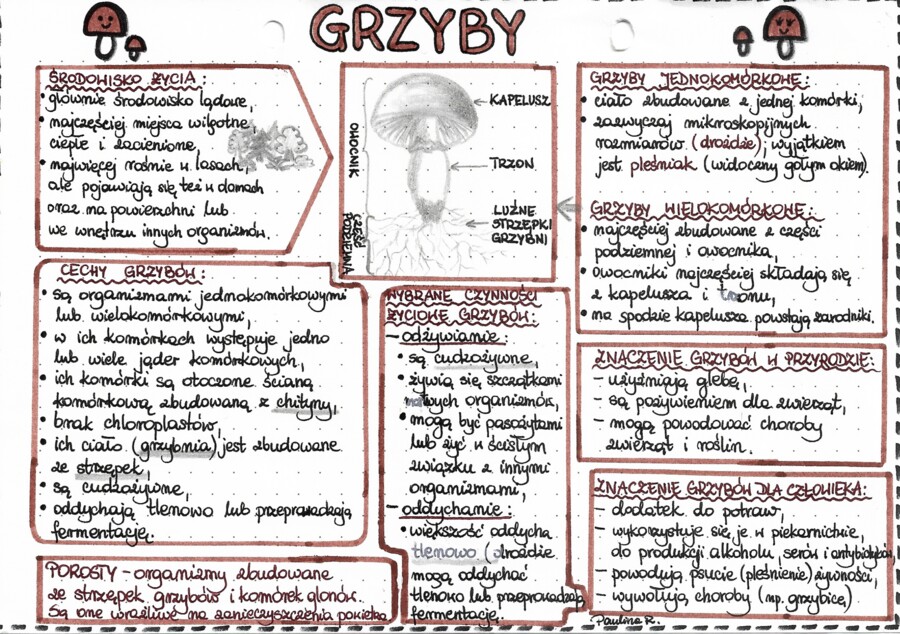 GRZYBY
ŚRODOWISKO ŻYCIA:
• głównie środowisko lądowe,
• najczęściej miejsca wilgotne,
ciepłe i zacienione,
• najwięcej rośnie w lasach,
ale pojawiają się też w domach
oraz na powierzchni lub
we wnętrzu innych organizmów.
OWOCNIK
CZĘŚĆ
PODZIEMNA
KAPELUSZ
TRZON
LUŹNE
STRZĘPKI
GRZYBNI
GRZYBY JEDNOKOMÓRKOWE:
• ciało zbudowane z jednej komórki,
• zazwyczaj mikroskopijnych
rozmiarów (drożdże); wyjątkiem
jest pleśniak (widoczny gołym okiem).
GRZYBY WIELOKOMÓRKOWE:
• najczęściej zbudowane z części
podziemnej i owocnika,
• owocniki najczęściej składają się
z kapelusza i trzonu,
• na spodzie kapelusza powstają zarodniki.
CECHY GRZYBÓW:
• są organizmami jednokomórkowymi
lub wielokomórkowymi,
• w ich komórkach występuje jedno
lub wiele jąder komórkowych,
• ich komórki są otoczone ścianą
komórkową zbudowaną z chityny,
• brak chloroplastów,
• ich ciało (grzybnia) jest zbudowane
ze strzępek,
• są cudzożywne,
• oddychają tlenowo lub przeprowadzają
fermentację.
WYBRANE CZYNNOŚCI
ŻYCIOWE GRZYBÓW:
– odżywianie:
• są cudzożywne,
• żywią się szczątkami
martwych organizmów,
• mogą być pasożytami
lub żyć w ścisłym
związku z innymi
organizmami,
– oddychanie:
• większość oddycha
tlenowo (drożdże
mogą oddychać
tlenowo lub przeprowadzają
fermentację.
ZNACZENIE GRZYBÓW W PRZYRODZIE:
– użyźniają glebę,
– są pożywieniem dla zwierząt,
– mogą powodować choroby
zwierząt i roślin.
ZNACZENIE GRZYBÓW DLA CZŁOWIEKA:
– dodatek do potraw,
– wykorzystuje się je w piekarnictwie,
do produkcji alkoholu, serów i antybiotyków,
– powodują psucie (pleśnienie) żywności,
– wywołują choroby (np. grzybicę).
POROSTY – organizmy zbudowane
ze strzępek grzybów i komórek glonów.
Są one wrażliwe na zanieczyszczenia powietrza
Paulina R.